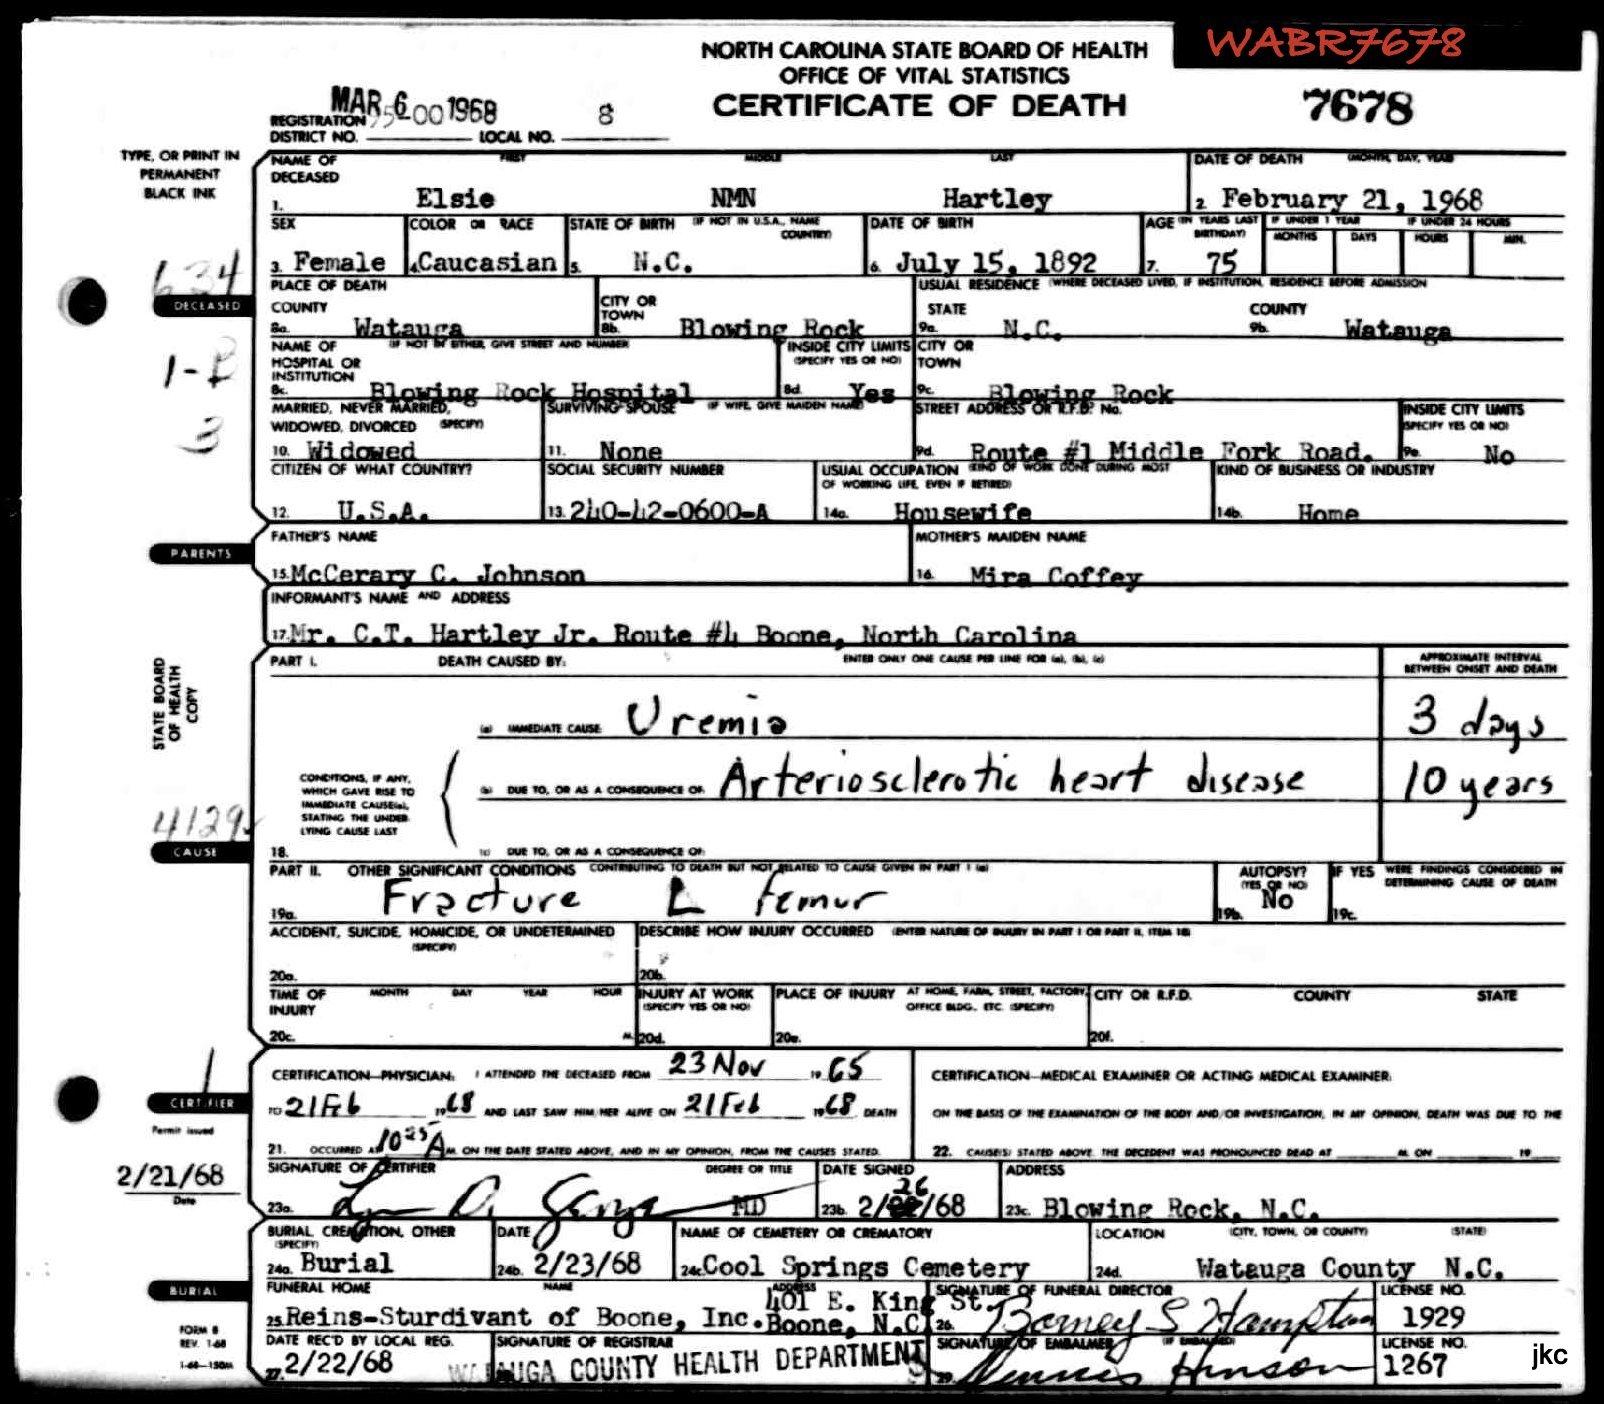 WABR7678
NORTH CAROLINA STATE BOARD OF HEALTH
OFFICE OF VITAL STATISTICS
CERTIFICATE OF DEATH
7678
MAR 6 1968
REGISTRATION DISTRICT NO. 95-00 LOCAL NO. 8
TYPE, OR PRINT IN
PERMANENT
BLACK INK
NAME OF DECEASED FIRST MIDDLE LAST DATE OF DEATH (MONTH, DAY, YEAR)
1. Elsie NMN Hartley 2. February 21, 1968
SEX COLOR OR RACE STATE OF BIRTH (IF NOT IN U.S.A., NAME COUNTRY) DATE OF BIRTH AGE (IN YEARS LAST BIRTHDAY) IF UNDER 1 YEAR IF UNDER 24 HOURS
MONTHS DAYS HOURS MIN.
3. Female 4. Caucasian 5. N.C. 6. July 15, 1892 7. 75
634
DECEASED
PLACE OF DEATH USUAL RESIDENCE (WHERE DECEASED LIVED, IF INSTITUTION, RESIDENCE BEFORE ADMISSION
COUNTY CITY OR TOWN STATE COUNTY
8a. Watauga 8b. Blowing Rock 9a. N.C. 9b. Watauga
NAME OF HOSPITAL OR INSTITUTION (IF NOT IN EITHER, GIVE STREET AND NUMBER INSIDE CITY LIMITS (SPECIFY YES OR NO) CITY OR TOWN
8c. Blowing Rock Hospital 8d. Yes 9c. Blowing Rock
3
MARRIED, NEVER MARRIED, WIDOWED, DIVORCED (SPECIFY) SURVIVING SPOUSE (IF WIFE, GIVE MAIDEN NAME) STREET ADDRESS OR R.F.D. No. INSIDE CITY LIMITS (SPECIFY YES OR NO)
10. Widowed 11. None 9d. Route #1 Middle Fork Road. 9e. No
CITIZEN OF WHAT COUNTRY? SOCIAL SECURITY NUMBER USUAL OCCUPATION (KIND OF WORK DONE DURING MOST OF WORKING LIFE, EVEN IF RETIRED) KIND OF BUSINESS OR INDUSTRY
12. U.S.A. 13. 240-42-0600-A 14a. Housewife 14b. Home
PARENTS
FATHER'S NAME MOTHER'S MAIDEN NAME
15. McCerary C. Johnson 16. Mira Coffey
INFORMANT'S NAME AND ADDRESS
17. Mr. C.T. Hartley Jr. Route #4 Boone, North Carolina
STATE BOARD
OF HEALTH
COPY
PART I. DEATH CAUSED BY: ENTER ONLY ONE CAUSE PER LINE FOR (a), (b), (c) APPROXIMATE INTERVAL BETWEEN ONSET AND DEATH
(a) IMMEDIATE CAUSE Uremia 3 days
CONDITIONS, IF ANY,
WHICH GAVE RISE TO
IMMEDIATE CAUSE(a),
STATING THE UNDER-
LYING CAUSE LAST
(b) DUE TO, OR AS A CONSEQUENCE OF: Arteriosclerotic heart disease 10 years
4129
CAUSE
18. (c) DUE TO, OR AS A CONSEQUENCE OF:
PART II. OTHER SIGNIFICANT CONDITIONS CONTRIBUTING TO DEATH BUT NOT RELATED TO CAUSE GIVEN IN PART I (a) AUTOPSY? (YES OR NO) IF YES WERE FINDINGS CONSIDERED IN DETERMINING CAUSE OF DEATH
19a. Fracture L femur 19b. No 19c.
ACCIDENT, SUICIDE, HOMICIDE, OR UNDETERMINED (SPECIFY) DESCRIBE HOW INJURY OCCURRED (ENTER NATURE OF INJURY IN PART I OR PART II, ITEM 18)
20a. 20b.
TIME OF INJURY MONTH DAY YEAR HOUR INJURY AT WORK (SPECIFY YES OR NO) PLACE OF INJURY AT HOME, FARM, STREET, FACTORY, OFFICE BLDG., ETC. (SPECIFY) CITY OR R.F.D. COUNTY STATE
20c. M. 20d. 20e. 20f.
1
CERTIFIER
CERTIFICATION—PHYSICIAN: I ATTENDED THE DECEASED FROM 23 Nov 19 65
TO 21 Feb 19 68 AND LAST SAW HIM/HER ALIVE ON 21 Feb 19 68 DEATH
21. OCCURRED AT 10 25 A M. ON THE DATE STATED ABOVE, AND IN MY OPINION, FROM THE CAUSES STATED.
CERTIFICATION—MEDICAL EXAMINER OR ACTING MEDICAL EXAMINER:
ON THE BASIS OF THE EXAMINATION OF THE BODY AND/OR INVESTIGATION, IN MY OPINION, DEATH WAS DUE TO THE
22. CAUSE(S) STATED ABOVE. THE DECEDENT WAS PRONOUNCED DEAD AT M. ON 19
Permit issued
2/21/68
Date
SIGNATURE OF CERTIFIER DEGREE OR TITLE DATE SIGNED ADDRESS
23a. MD 23b. 2/26/68 23c. Blowing Rock, N.C.
BURIAL, CREMATION, OTHER (SPECIFY) DATE NAME OF CEMETERY OR CREMATORY LOCATION (CITY, TOWN, OR COUNTY) (STATE)
24a. Burial 24b. 2/23/68 24c. Cool Springs Cemetery 24d. Watauga County N.C.
BURIAL
FUNERAL HOME NAME ADDRESS SIGNATURE OF FUNERAL DIRECTOR LICENSE NO.
25. Reins-Sturdivant of Boone, Inc. 401 E. King St. Boone, N.C. 26. Barney S Hampton 1929
FORM 8
REV. 1-68
1-68—150M
DATE REC'D BY LOCAL REG. SIGNATURE OF REGISTRAR SIGNATURE OF EMBALMER (IF EMBALMED) LICENSE NO.
27. 2/22/68 WATAUGA COUNTY HEALTH DEPARTMENT 29. Dennis Hinson 1267
jkc